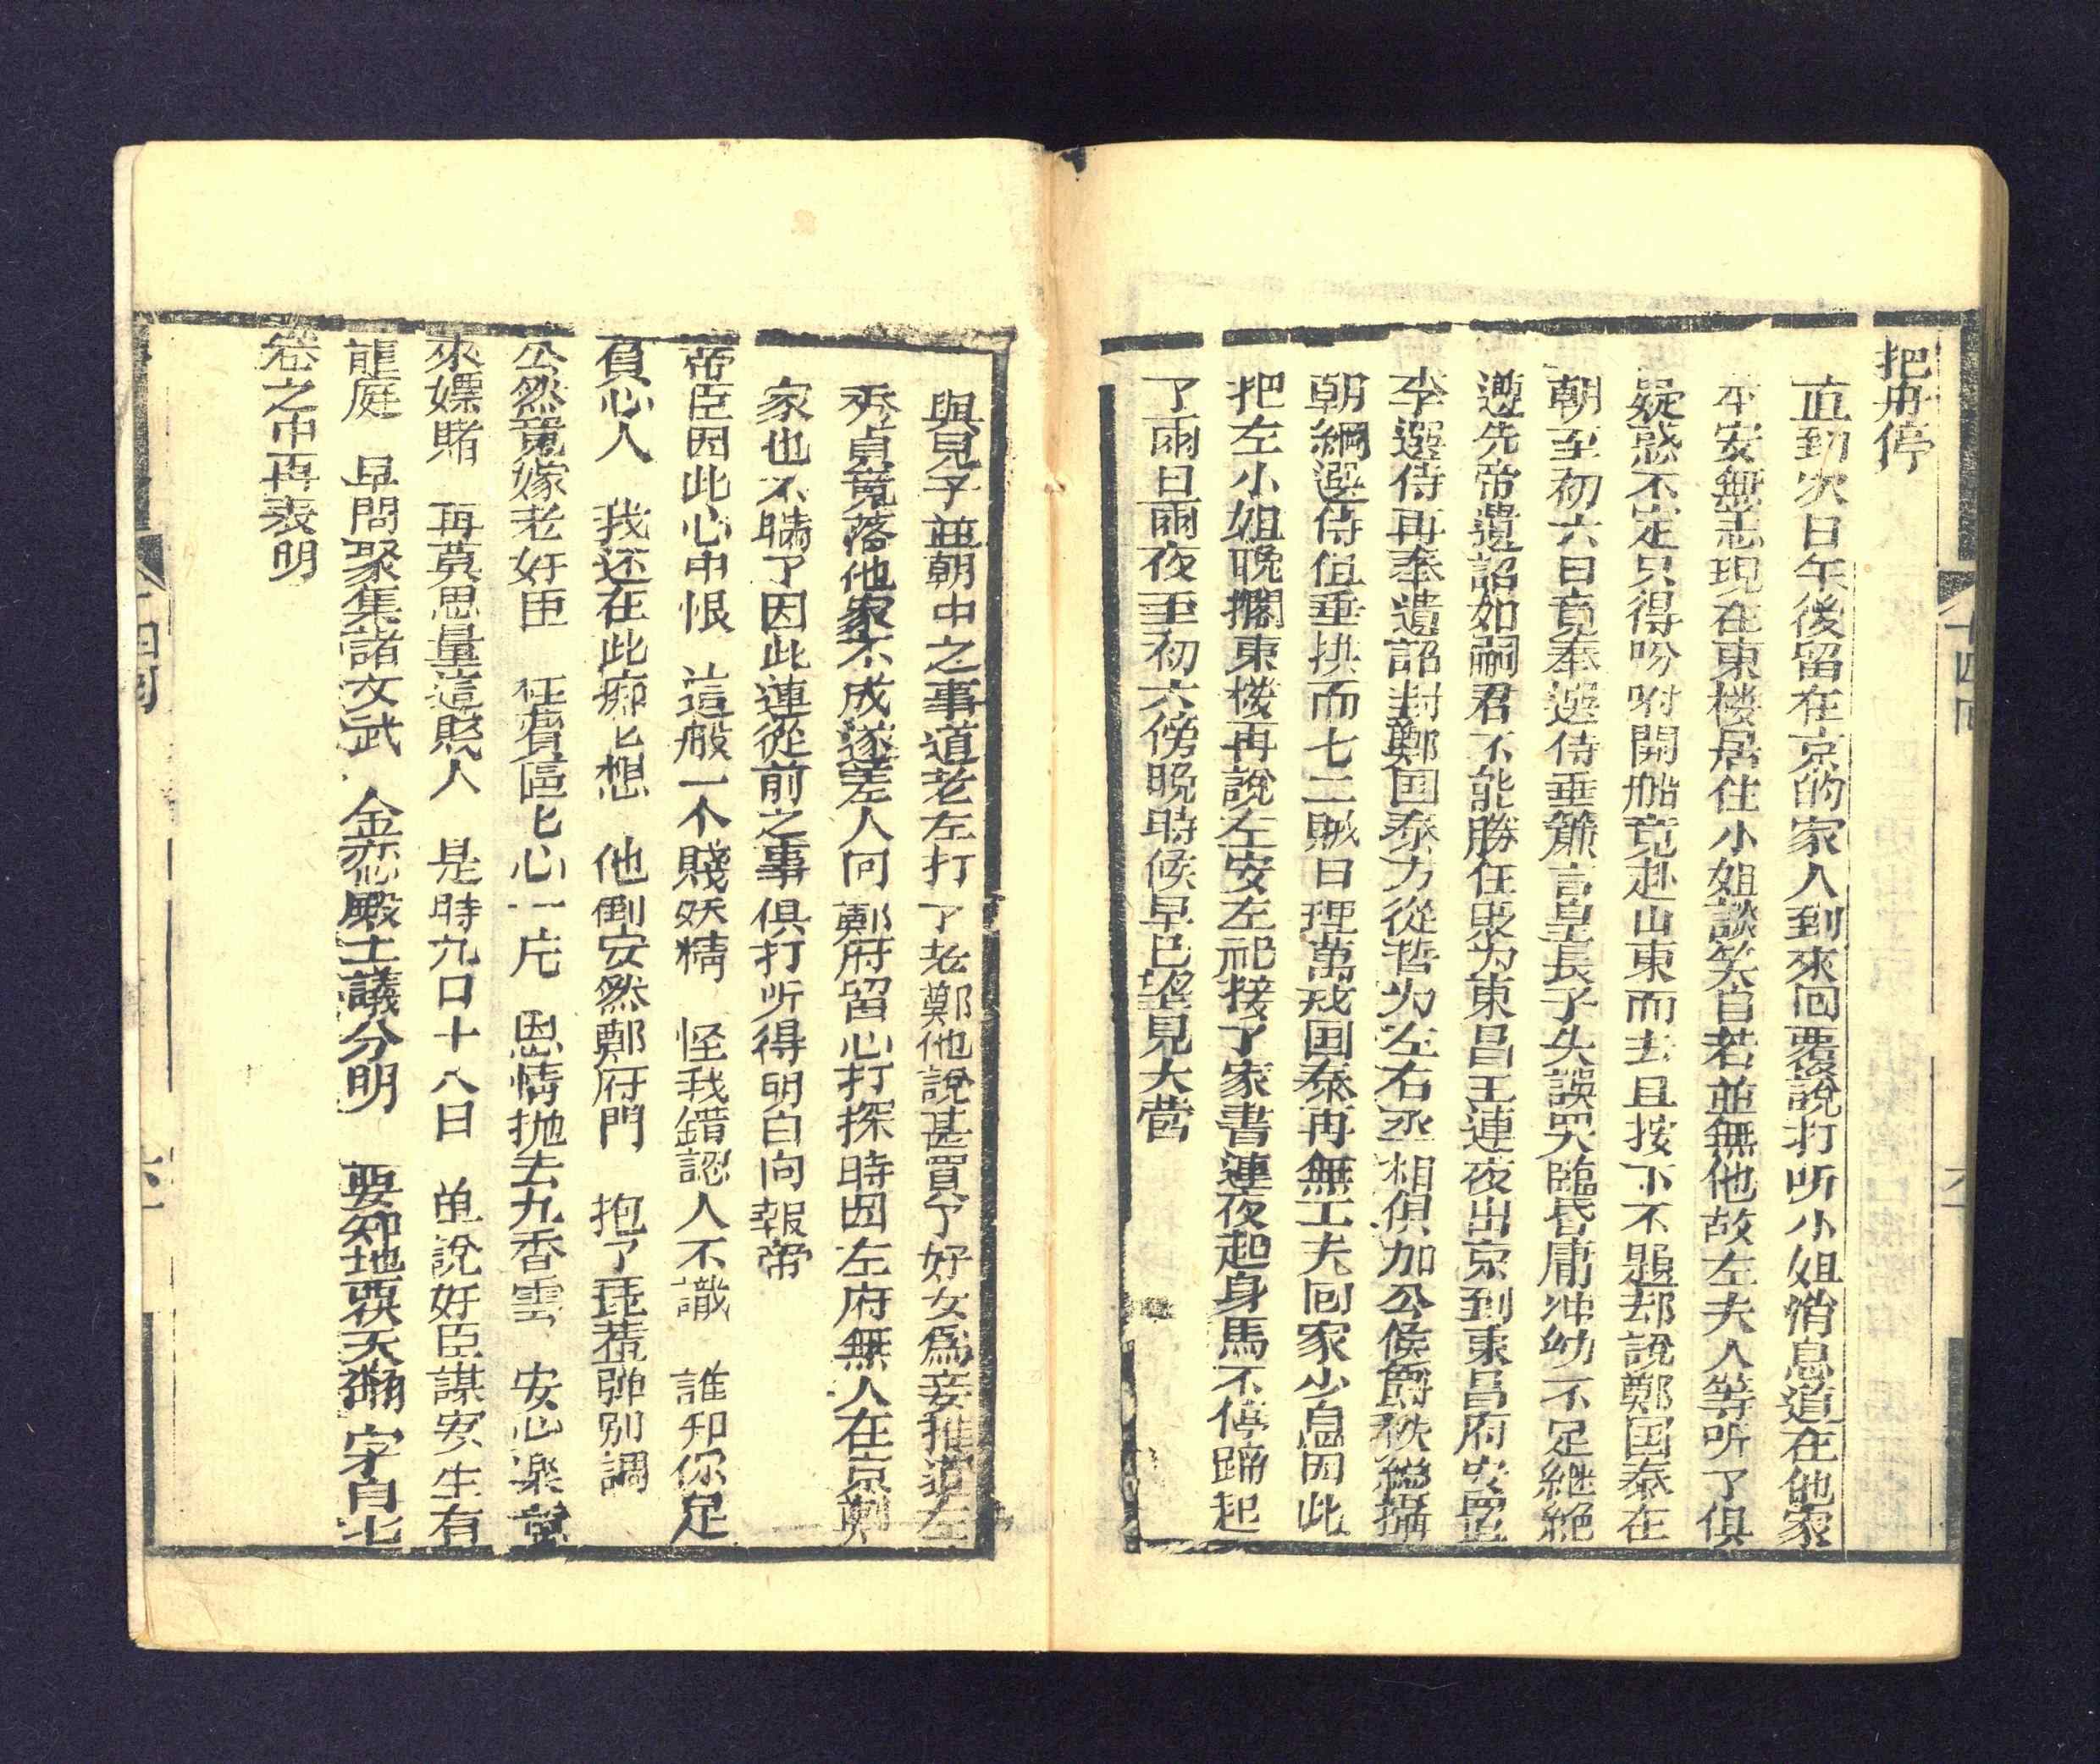 把舟停
直到次日午後留在京的家人到來回覆說打听小姐消息道在他家
平安無恙現在東楼居住小姐談笑自若並無他故左夫人等听了俱
疑惑不定只得吩咐開船竟赴山東而去且按下不題却說鄭国泰在
朝至初六日竟奉選侍垂簾言皇長子失誤哭臨昏庸冲幼不足継絶
遵先帝遺詔如嗣君不能勝任貶为東昌王連夜出京到東昌府安置
李選侍再奉遺詔封鄭国泰方從哲为左右丞相俱加公侯爵秩縂攝
朝綱選侍伹垂拱而七二賊日理萬㡬国泰再無工夫回家少息因此
把左小姐晚擱東楼再說左安左祀接了家書連夜起身馬不停蹄起
了兩日兩夜至初六傍晚時候早已望見大营
十四回
與兒子並朝中之事道老左打了老鄭他說甚買了好女為妾推道左
秀貞竟落他家不成遂差人向鄭府留心打探時因左府無人在京鄭
家也不瞒了因此連從前之事俱打听得明白向報帝
帝臣因此心中恨　這般一个賤妖精　怪我錯認人不識　誰知你足
負心人　我还在此痴匕想　他倒安然鄭府門　抱了琵琶彈别調
公然竟嫁老奸臣　枉費區匕心一片　恩情抛去九香雲　安心楽意
來嫖賭　再莫思量這㷖人　是時九口十八日　单說奸臣謀安生有
龍庭　早問聚集諸文武　金鑾殿上議分明　要知地覆天翻　字自七
卷之中再表明